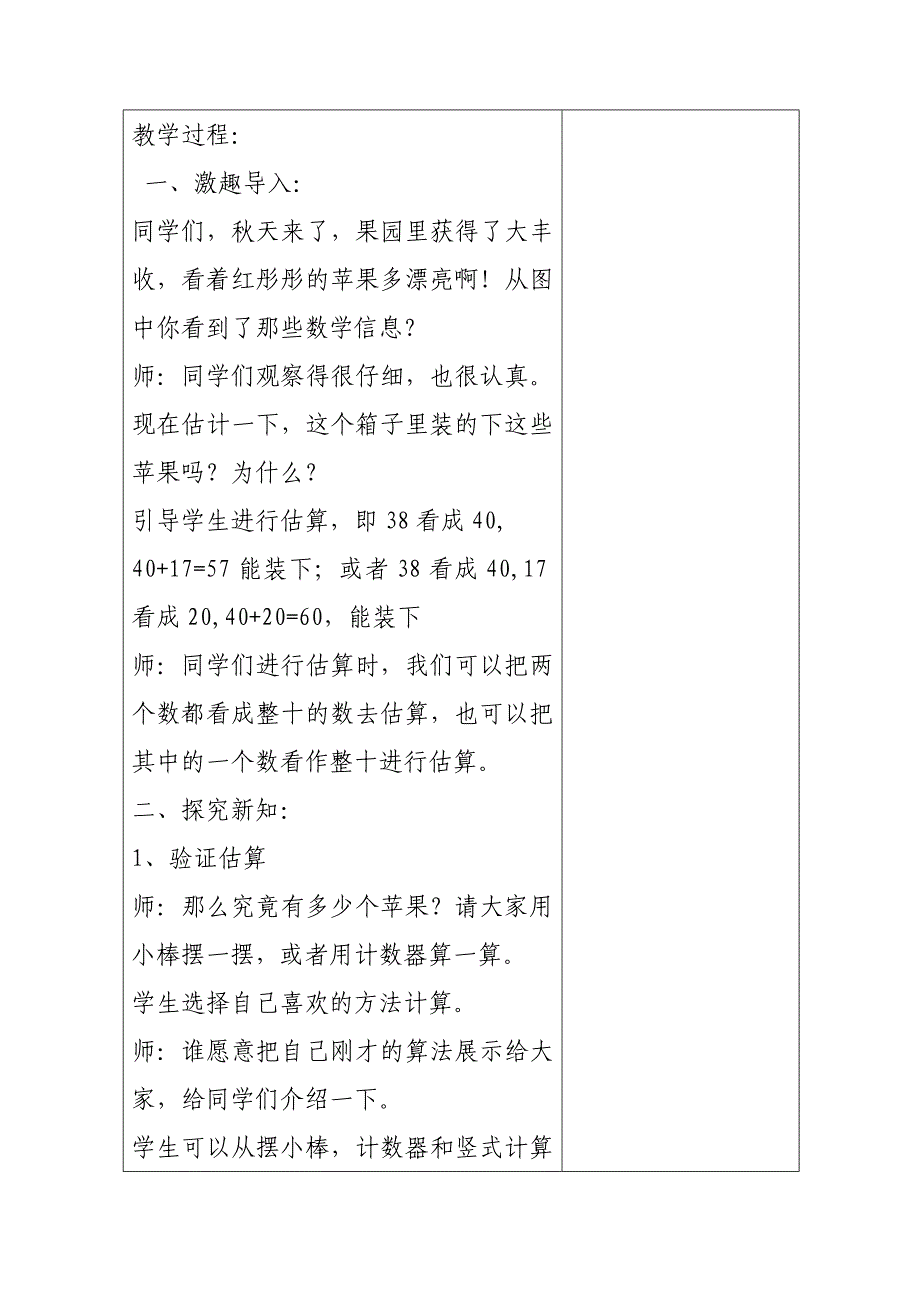 教学过程：
一、激趣导入：
同学们，秋天来了，果园里获得了大丰
收，看着红彤彤的苹果多漂亮啊！从图
中你看到了那些数学信息？
师：同学们观察得很仔细，也很认真。
现在估计一下，这个箱子里装的下这些
苹果吗？为什么？
引导学生进行估算，即 38 看成 40,
40+17=57 能装下；或者 38 看成 40,17
看成 20,40+20=60，能装下
师：同学们进行估算时，我们可以把两
个数都看成整十的数去估算，也可以把
其中的一个数看作整十进行估算。
二、探究新知：
1、验证估算
师：那么究竟有多少个苹果？请大家用
小棒摆一摆，或者用计数器算一算。
学生选择自己喜欢的方法计算。
师：谁愿意把自己刚才的算法展示给大
家，给同学们介绍一下。
学生可以从摆小棒，计数器和竖式计算